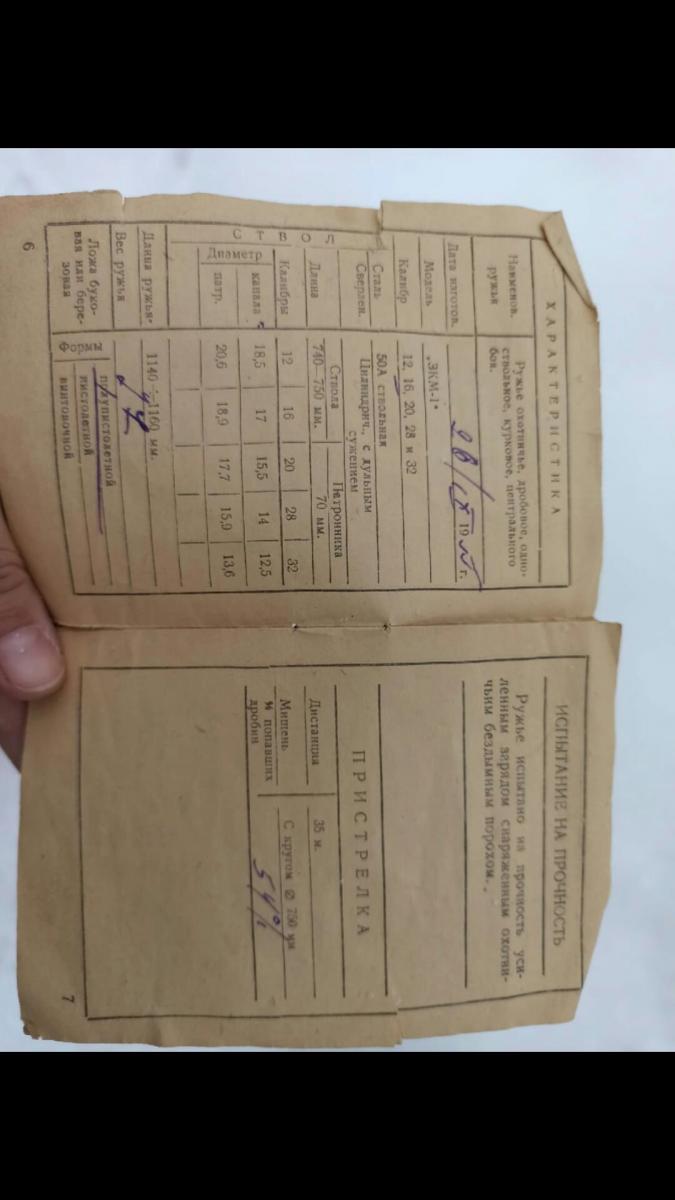 ХАРАКТЕРИСТИКА
Наименов. ружья Ружье охотничье, дробовое, одно-
ствольное, курковое, центрального
боя.
Дата изготов. 28/IX 19 г.
Модель „ЗКМ-1"
Калибр 12, 16, 20, 28 и 32
СТВОЛ
Сталь 50А ствольная
Сверлен. Цилиндрич., с дульным
сужением
Длина Ствола Патронника
740-750 мм. 70 мм.
Калибры 12 16 20 28 32
Диаметр канала 18,5 17 15,5 14 12,5
патр. 20,6 18,9 17,7 15,9 13,6
Длина ружья 1140÷1160 мм.
Вес ружья
Ложа буко-
вая или бере-
зовая
Формы полупистолетной
пистолетной
винтовочной
6
ИСПЫТАНИЕ НА ПРОЧНОСТЬ
Ружье испытано на прочность уси-
ленным зарядом снаряженным охотни-
чьим бездымным порохом.
ПРИСТРЕЛКА
Дистанция 35 м.
Мишень С кругом Ø 750 мм
% попавших
дробин 54%
7